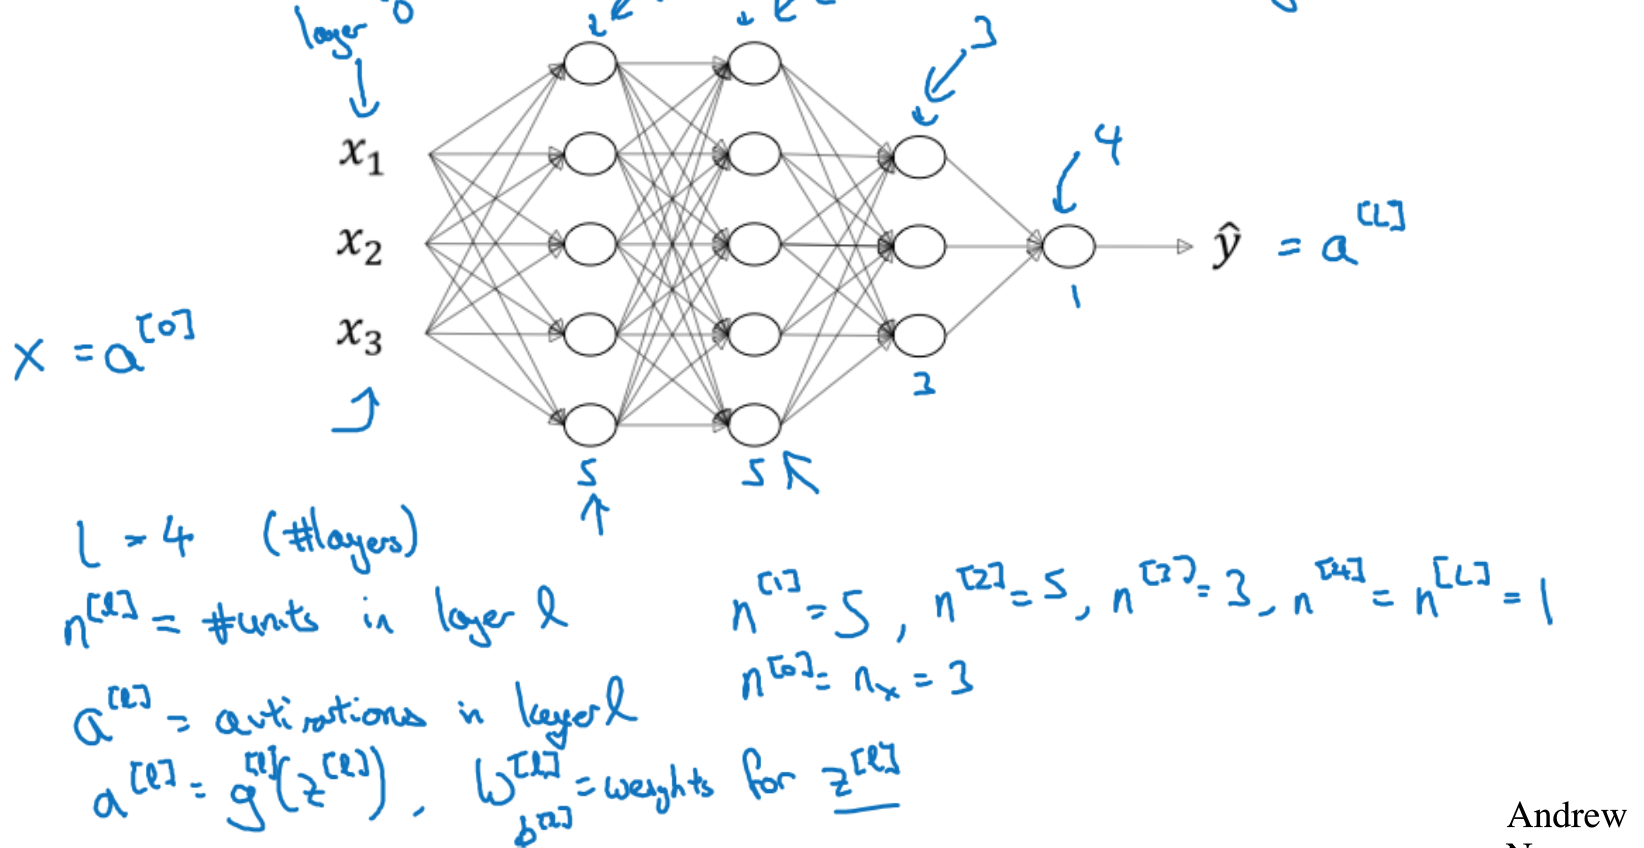 layer 0
3
4
x₁
x₂
x₃
ŷ = a^[L]
X = a^[0]
1
3
5 5
L = 4 (#layers)
n^[l] = #units in layer l
n^[1] = 5, n^[2] = 5, n^[3] = 3, n^[4] = n^[L] = 1
n^[0] = nₓ = 3
a^[l] = activations in layer l
a^[l] = g^[l](z^[l]), W^[l] = weights for z^[l]
b^[l]
Andrew